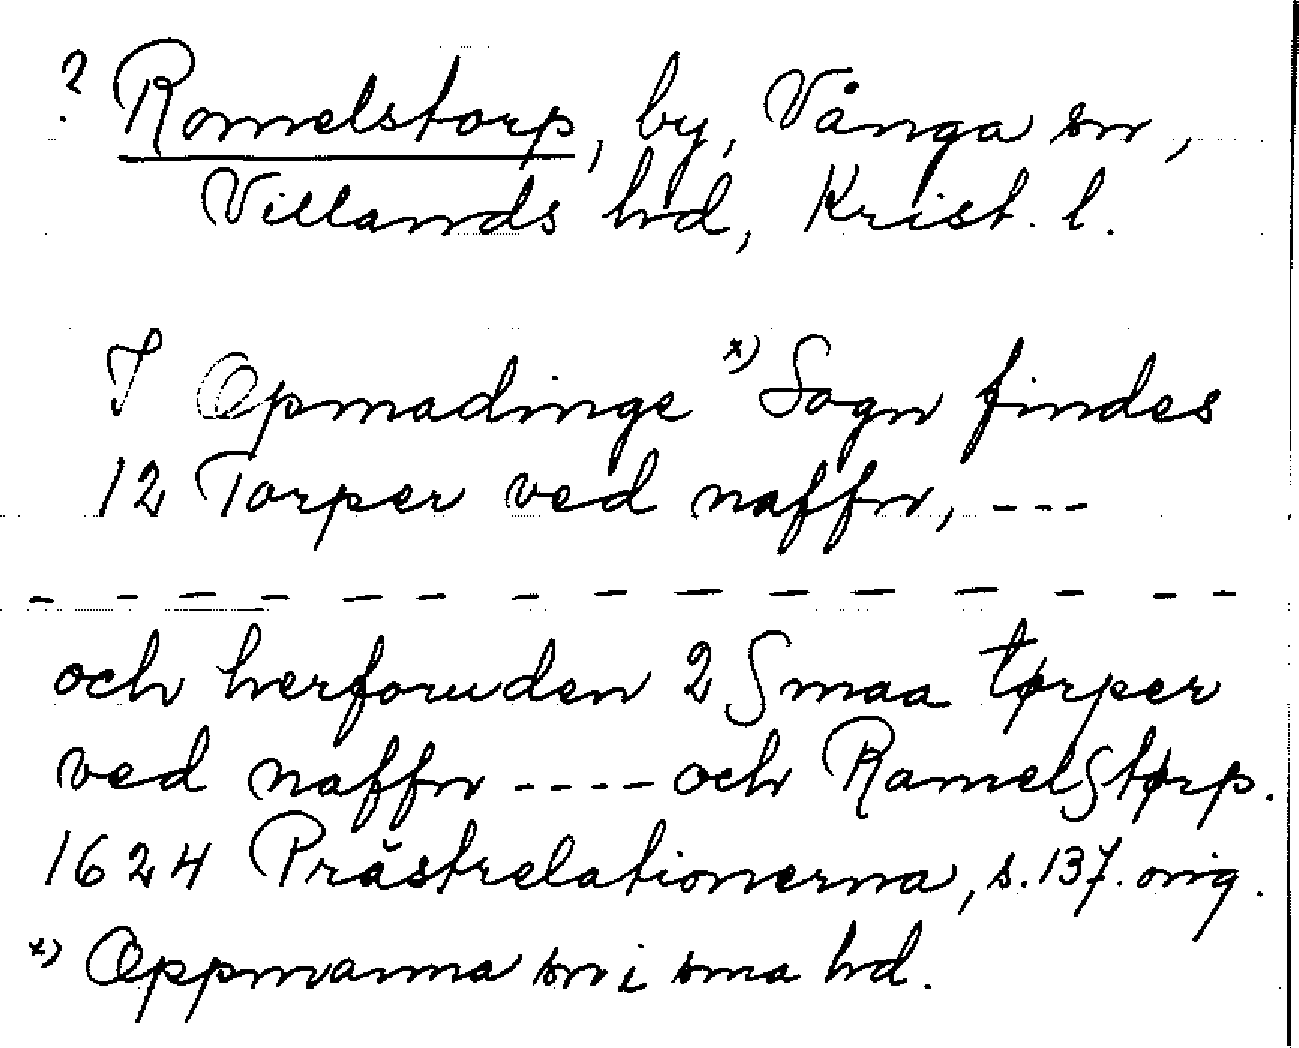 ? Romelstorp, by, Vånga sn,
Villands hd, Krist. l.
I Opmadinge x) Sogn findes
12 Torper ved naffn, ---
- - - - - - - - - - - - - - -
och herforuden 2 Smaa tørper
ved naffn ---- och Ramelstørp.
1624 Prästrelationerna, s. 137. orig.
x) Oppmanna sn i sma hd.